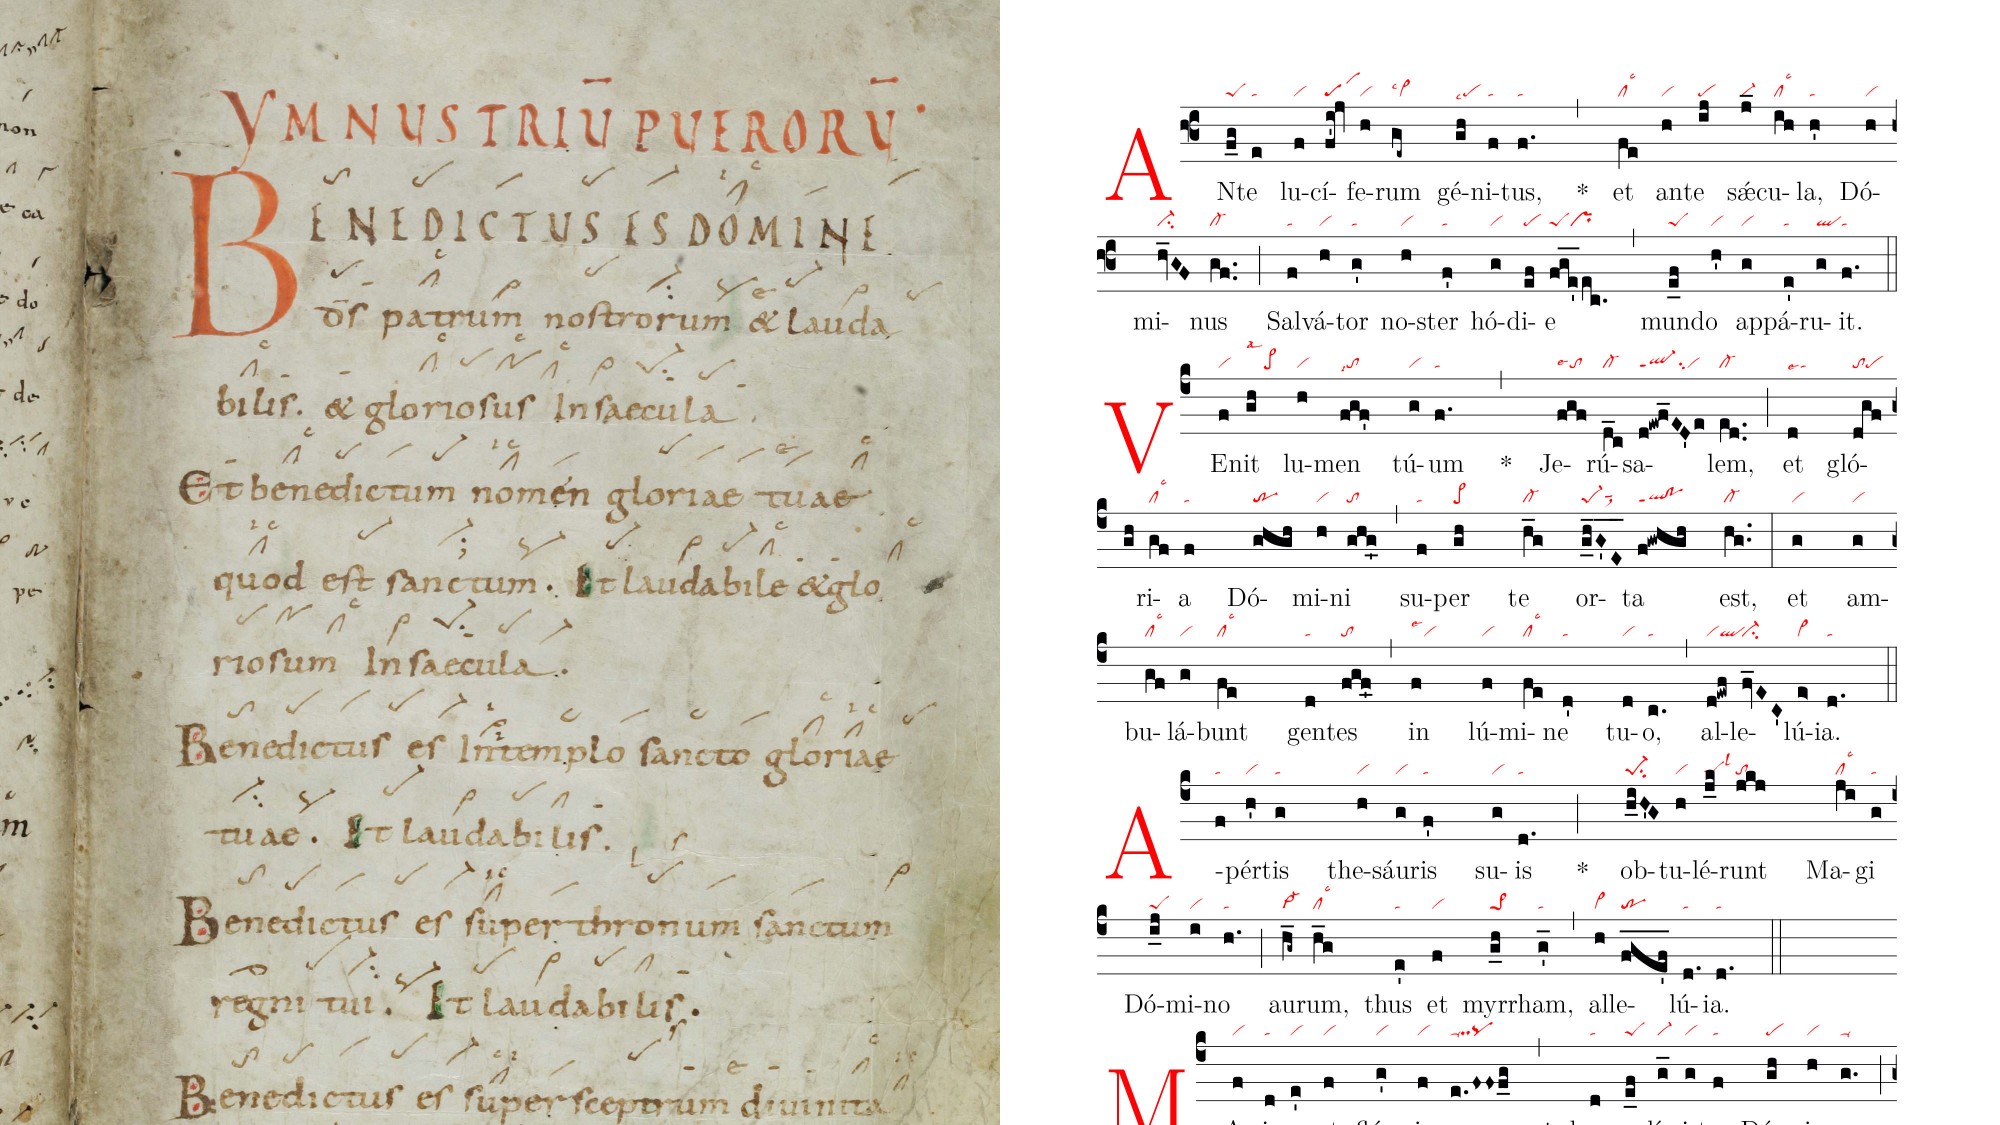 YMNUS TRIŪ PUERORŪ.
BENEDICTUS ES DOMINE
ds̄ patrum nostrorum & lauda
bilis. & gloriosus In saecula.
Et benedictum nomen gloriae tuae
quod est sanctum. Et laudabile & glo
riosum In saecula.
Benedictus es In templo sancto gloriae
tuae. Et laudabilis.
Benedictus es super thronum sanctum
regni tui. Et laudabilis.
Benedictus es super sceptrum diuinita
ANte lu-cí-fe-rum gé-ni-tus, * et ante sǽcu-la, Dó-
mi-nus Salvá-tor no-ster hó-di-e mundo appá-ru-it.
VEnit lu-men tú-um * Je-rú-sa-lem, et gló-
ri-a Dó-mi-ni su-per te or-ta est, et am-
bu-lá-bunt gentes in lú-mi-ne tu-o, al-le-lú-ia.
A-pértis the-sáuris su-is * ob-tu-lé-runt Ma-gi
Dó-mi-no aurum, thus et myrrham, alle-lú-ia.
M